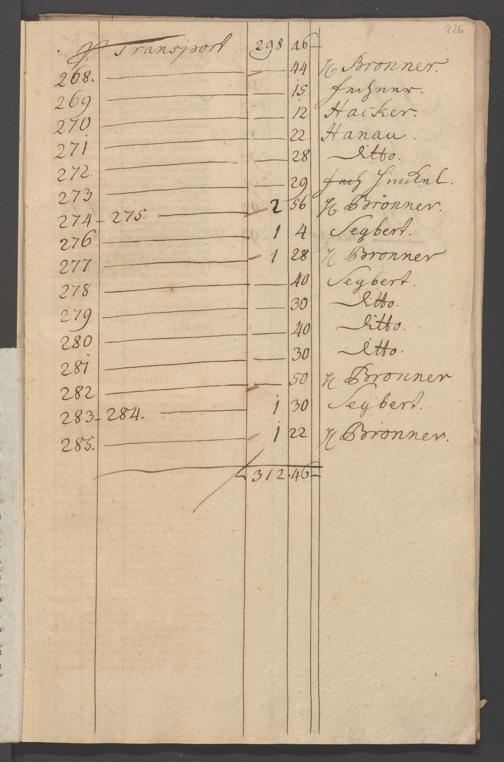 226
Transport 298 46
268. 44 H Bronner.
269 15
270 12 Hacker.
271 22 Hanau.
272 28 Ditto.
273 29
274-275. 2 56 H Bronner.
276 1 4 Seybert.
277 1 28 H Bronner
278 40 Seybert.
279 30 Ditto.
280 40 Ditto.
281 30 Ditto.
282 50 H Bronner
283-284. 1 30 Seybert.
285. 1 22 H Bronner.
312.46